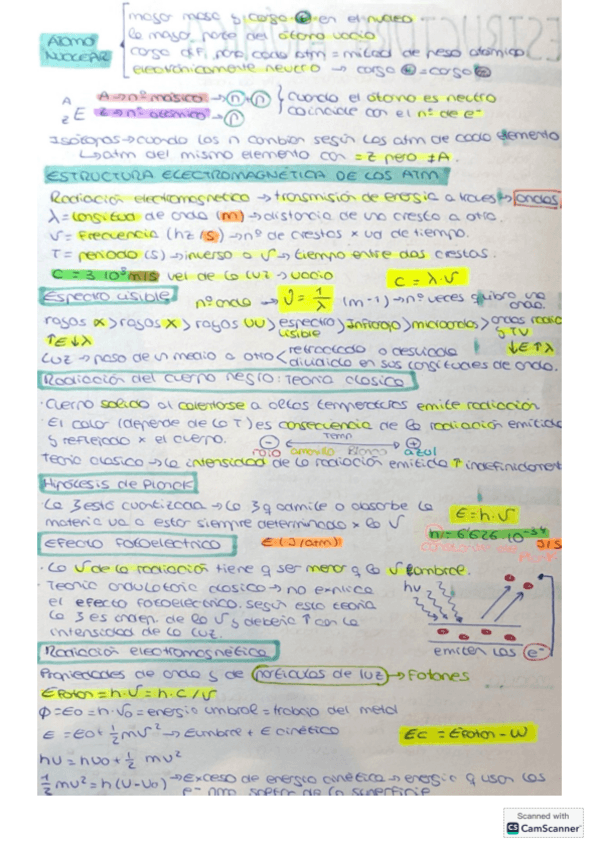 mayor masa y carga ⊕ en el núcleo
la mayor parte del átomo vacío
ÁTOMO NUCLEAR
carga dif. para cada atm = mitad de peso atómico
electrónicamente neutro → carga ⊕ = carga ⊖
A Z E A → nº másico → n + p cuando el átomo es neutro
Z → nº atómico → p coincide con el nº de e⁻
Isótopos → cuando los n cambian según los atm de cada elemento
↳ atm del mismo elemento con = Z pero ≠ A.
ESTRUCTURA ELECTROMAGNÉTICA DE LOS ATM
Radiación electromagnética → transmisión de energía a través → ondas
λ = longitud de onda (m) → distancia de una cresta a otra.
ν = frecuencia (hz/s) → nº de crestas × ud de tiempo.
T = periodo (s) → inverso a ν → tiempo entre dos crestas.
C = 3·10⁸ m/s vel de la luz → vacío C = λ·ν
Espectro visible nº onda → ν = 1/λ (m⁻¹) → nº veces q vibra una onda.
rayos α > rayos X > rayos UV > espectro visible > Infrarojo > microondas > ondas radio y TV
↑E ↓λ ↓E ↑λ
LUZ → pasa de un medio a otro < refractada o desviada
dividida en sus longitudes de onda.
Radiación del cuerpo negro: Teoría clásica
· Cuerpo sólido al calentarse a altas temperaturas emite radiación
· El color (depende de la T) es consecuencia de la radiación emitida
y reflejada × el cuerpo. ⊖ Temp ⊕
rojo amarillo blanco azul
Teoría clásica → la intensidad de la radiación emitida ↑ indefinidament
Hipótesis de Planck
La E está cuantizada → la E q admite o absorbe la E = h·ν
materia va a estar siempre determinada × la ν
h = 6'626·10⁻³⁴ J/s
Efecto fotoeléctrico E (J/atm)
· La ν de la radiación tiene q ser menor q la ν umbral.
· Teoría ondulatoria clásica → no explica hν
el efecto fotoeléctrico. Según esta teoría
la E es indep. de la ν y debería ↑ con la
intensidad de la luz.
emiten los e⁻
Radiación electromagnética
Propiedades de onda y de partículas de luz → Fotones
E fotón = h·ν = h·c/ν
Φ = E0 = h·ν0 = energía umbral = trabajo del metal
E = E0 + ½ mv² → Eumbral + E cinética Ec = Efotón - W
hν = hν0 + ½ mv²
½ mv² = h(ν-ν0) → Exceso de energía cinética → energía q usan los
e⁻ para saltar de la superficie
Scanned with
CS CamScanner